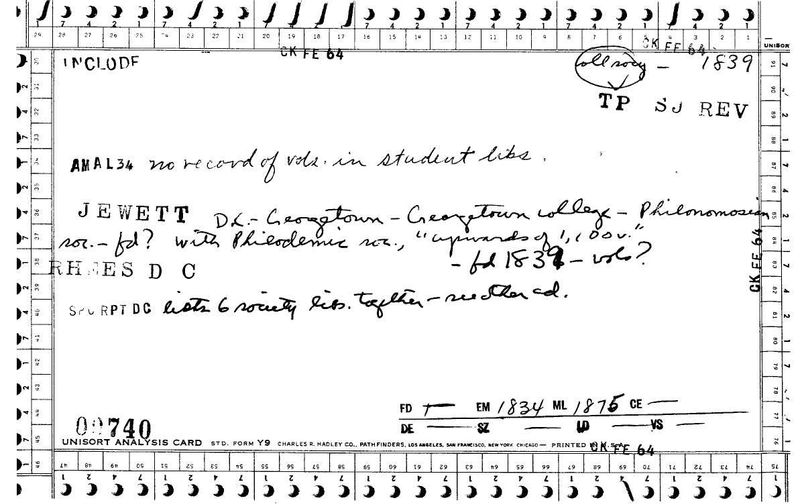 CK FE 64 CK FE 64 UNISOR
INCLUDE coll socy — 1839
TP SJ REV
AMAL34 no record of vols. in student libs.
JEWETT D.C. - Georgetown - Georgetown college - Philonomosian
soc. - fd? with Philodemic soc., "upwards of 1,100 v."
RHEES D C - fd 1839 - vols?
SPC RPT DC lists 6 society libs. together - see other cd.
CK FE 64
FD EM 1834 ML 1875 CE —
DE — SZ — LD — VS —
00740
UNISORT ANALYSIS CARD STD. FORM Y9 CHARLES R. HADLEY CO., PATHFINDERS, LOS ANGELES, SAN FRANCISCO, NEW YORK, CHICAGO — PRINTED IN U.S.A.
CK FE 64